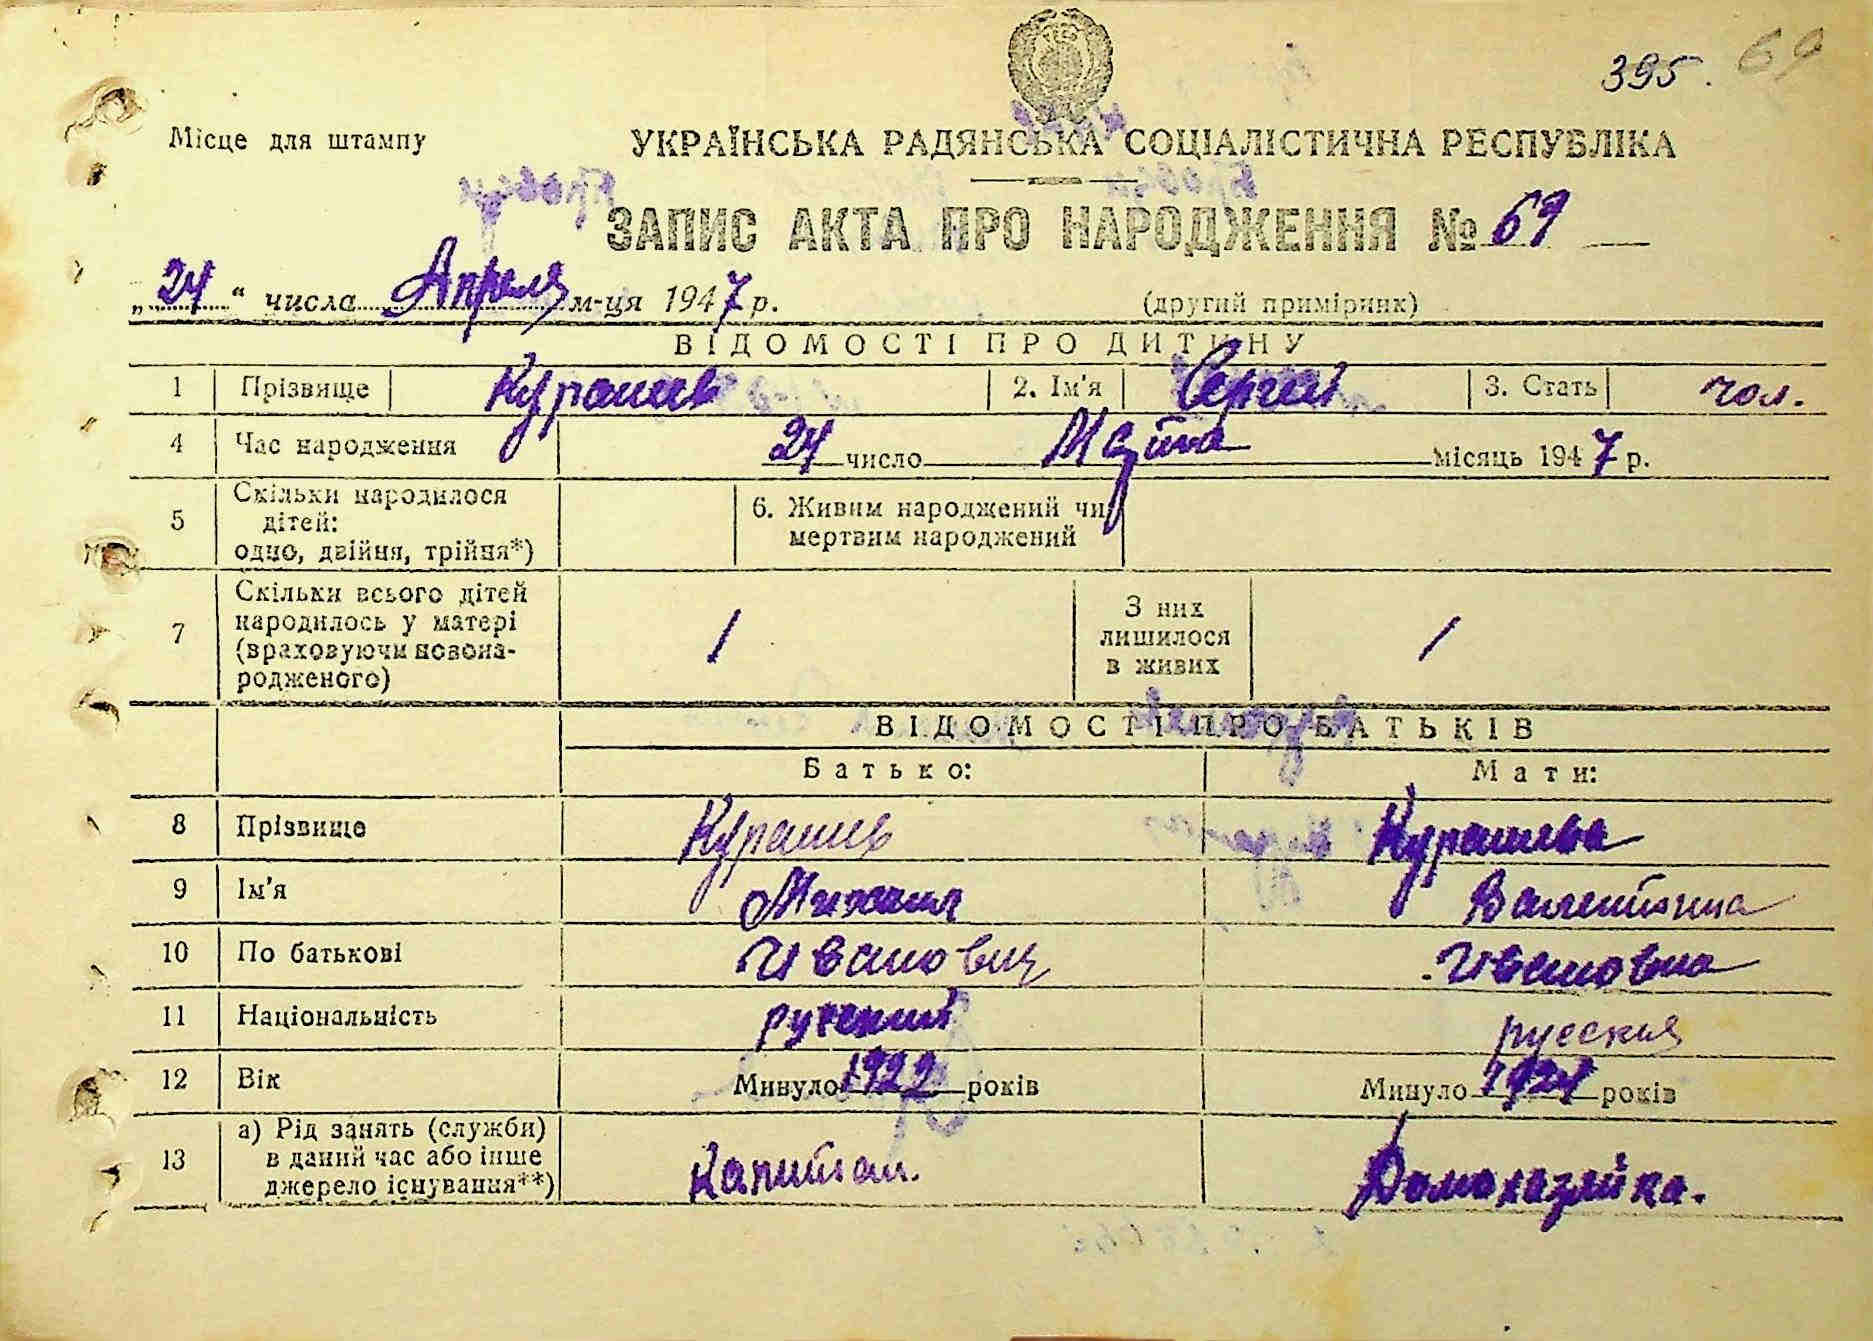 395. 69
Місце для штампу
УКРАЇНСЬКА РАДЯНСЬКА СОЦІАЛІСТИЧНА РЕСПУБЛІКА
ЗАПИС АКТА ПРО НАРОДЖЕННЯ № 69
„24“ числа Апреля м-ця 1947 р. (другий примірник)
ВІДОМОСТІ ПРО ДИТИНУ
1 Прізвище Курашев 2. Ім'я Сергей 3. Стать чол.
4 Час народження 24 число Марта місяць 1947 р.
5 Скільки народилося дітей: одно, двійня, трійня*) 6. Живим народжений чи мертвим народжений
7 Скільки всього дітей народилось у матері (враховуючи новонародженого) 1 З них лишилося в живих 1
ВІДОМОСТІ ПРО БАТЬКІВ
Батько: Мати:
8 Прізвище Курашев Курашева
9 Ім'я Михаил Валентина
10 По батькові Иванович Ивановна
11 Національність русский русская
12 Вік Минуло 1922 років Минуло 1924 років
13 а) Рід занять (служби) в даний час або інше джерело існування**) Капитан. Домохазяйка.